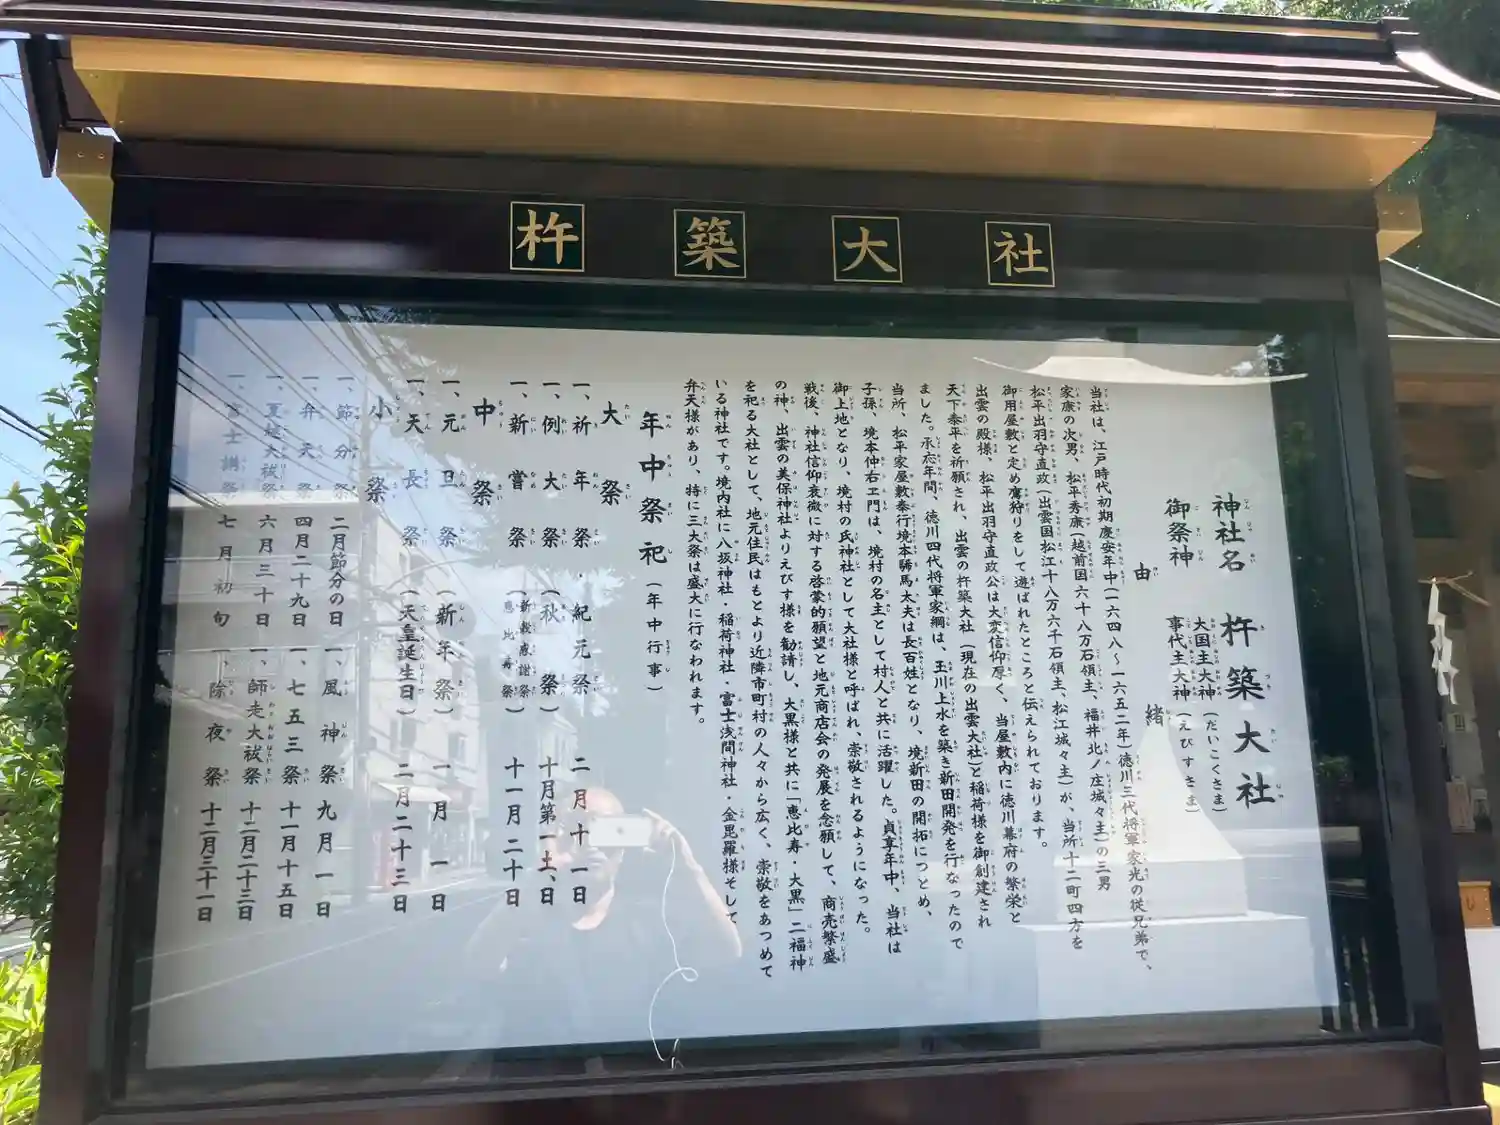 杵築大社
神社名 杵築大社
御祭神 大国主大神(だいこくさま)
事代主大神(えびすさま)
由緒
当社は、江戸時代初期慶安年中(一六四八~一六五二年)徳川三代将軍家光の従兄弟で、
家康の次男、松平秀康(越前国六十八万石領主、福井北ノ庄城々主)の三男
松平出羽守直政(出雲国松江十八万六千石領主、松江城々主)が、当所十二町四方を
御用屋敷と定め鷹狩りをして遊ばれたところと伝えられております。
出雲の殿様、松平出羽守直政公は大変信仰厚く、当屋敷内に徳川幕府の繁栄と
天下泰平を祈願され、出雲の杵築大社(現在の出雲大社)と稲荷様を御創建され
ました。承応年間、徳川四代将軍家綱は、玉川上水を築き新田開発を行なったので
当所、松平家屋敷奉行境本𬳽馬太夫は長百姓となり、境新田の開拓につとめ、
子孫、境本仲右ヱ門は、境村の名主として村人と共に活躍した。貞享年中、当社は
御上地となり、境村の氏神社として大社様と呼ばれ、崇敬されるようになった。
戦後、神社信仰衰微に対する啓蒙的願望と地元商店会の発展を念願して、商売繁盛
の神、出雲の美保神社よりえびす様を勧請し、大黒様と共に「恵比寿・大黒」二福神
を祀る大社として、地元住民はもとより近隣市町村の人々から広く、崇敬をあつめて
いる神社です。境内社に八坂神社・稲荷神社・富士浅間神社・金毘羅様そして
弁天様があり、特に三大祭は盛大に行なわれます。
年中祭祀(年中行事)
大祭
一、祈年祭・紀元祭 二月十一日
一、例大祭(秋祭) 十月第一土、日
一、新嘗祭(新穀感謝祭 恵比寿祭) 十一月二十日
中祭
一、元旦祭(新年祭) 一月一日
一、天長祭(天皇誕生日) 二月二十三日
小祭
一、節分祭 二月節分の日 一、風神祭 九月一日
一、弁天祭 四月二十九日 一、七五三祭 十一月十五日
一、夏越大祓祭 六月三十日 一、師走大祓祭 十二月二十三日
一、富士講祭 七月初旬 一、除夜祭 十二月三十一日